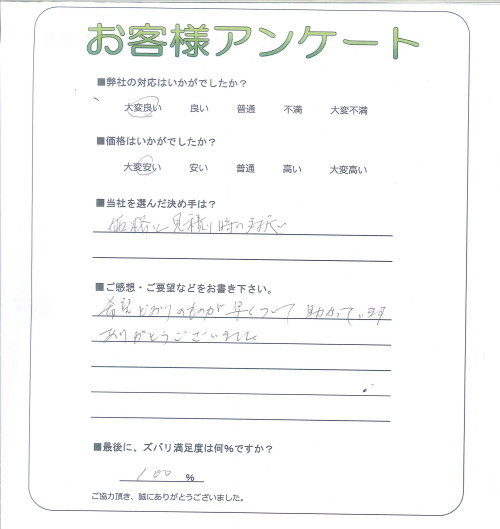 お客様アンケート
■弊社の対応はいかがでしたか？
大変良い 良い 普通 不満 大変不満
■価格はいかがでしたか？
大変安い 安い 普通 高い 大変高い
■当社を選んだ決め手は？
価格と見積り時の対応
■ご感想・ご要望などをお書き下さい。
希望どおりのものが早くついて助かっています
ありがとうございました
■最後に、ズバリ満足度は何%ですか？
100 %
ご協力頂き、誠にありがとうございました。